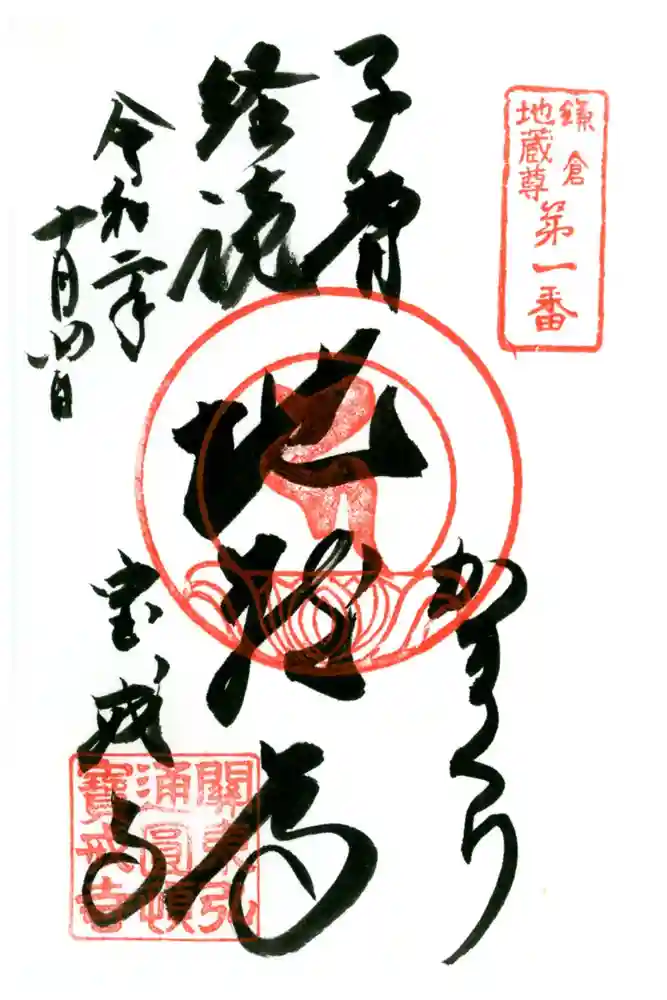 鎌倉
地蔵尊
第一番
かまくら
子育
経読
地蔵尊
令和二年
十月四日
宝戒寺
關東弘
通圓頓
寶戒寺